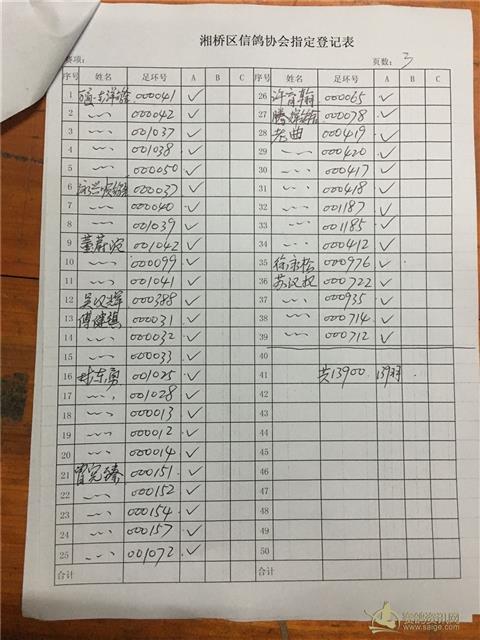 湘桥区信鸽协会指定登记表
赛项: 页数: 3
序号 姓名 足环号 A B C 序号 姓名 足环号 A B C
1 000041 ✓ 26 许育翰 000065 ✓
2 〃 000042 ✓ 27 000078 ✓
3 〃 001037 ✓ 28 老曲 000419 ✓
4 〃 001038 ✓ 29 〃 000420 ✓
5 〃 000050 ✓ 30 〃 000417 ✓
6 000037 ✓ 31 〃 000418 ✓
7 〃 000040 ✓ 32 〃 001187 ✓
8 〃 001039 ✓ 33 〃 001185 ✓
9 董蔚波 001042 ✓ 34 〃 000412 ✓
10 〃 000099 ✓ 35 徐永松 000976 ✓
11 〃 001041 ✓ 36 苏汉权 000722 ✓
12 吴汉辉 000388 ✓ 37 〃 000935 ✓
13 傅健鎮 000031 ✓ 38 〃 000714 ✓
14 〃 000032 ✓ 39 〃 000712 ✓
15 〃 000033 ✓ 40
16 林东勇 001025 ✓ 41 共13900 139羽.
17 〃 001028 ✓ 42
18 〃 000013 ✓ 43
19 〃 000012 ✓ 44
20 〃 000014 ✓ 45
21 曾宪臻 000151 ✓ 46
22 〃 000152 ✓ 47
23 〃 000154 ✓ 48
24 〃 000157 ✓ 49
25 〃 001072 ✓ 50
合计 合计
赛鸽资讯网
www.saige.com